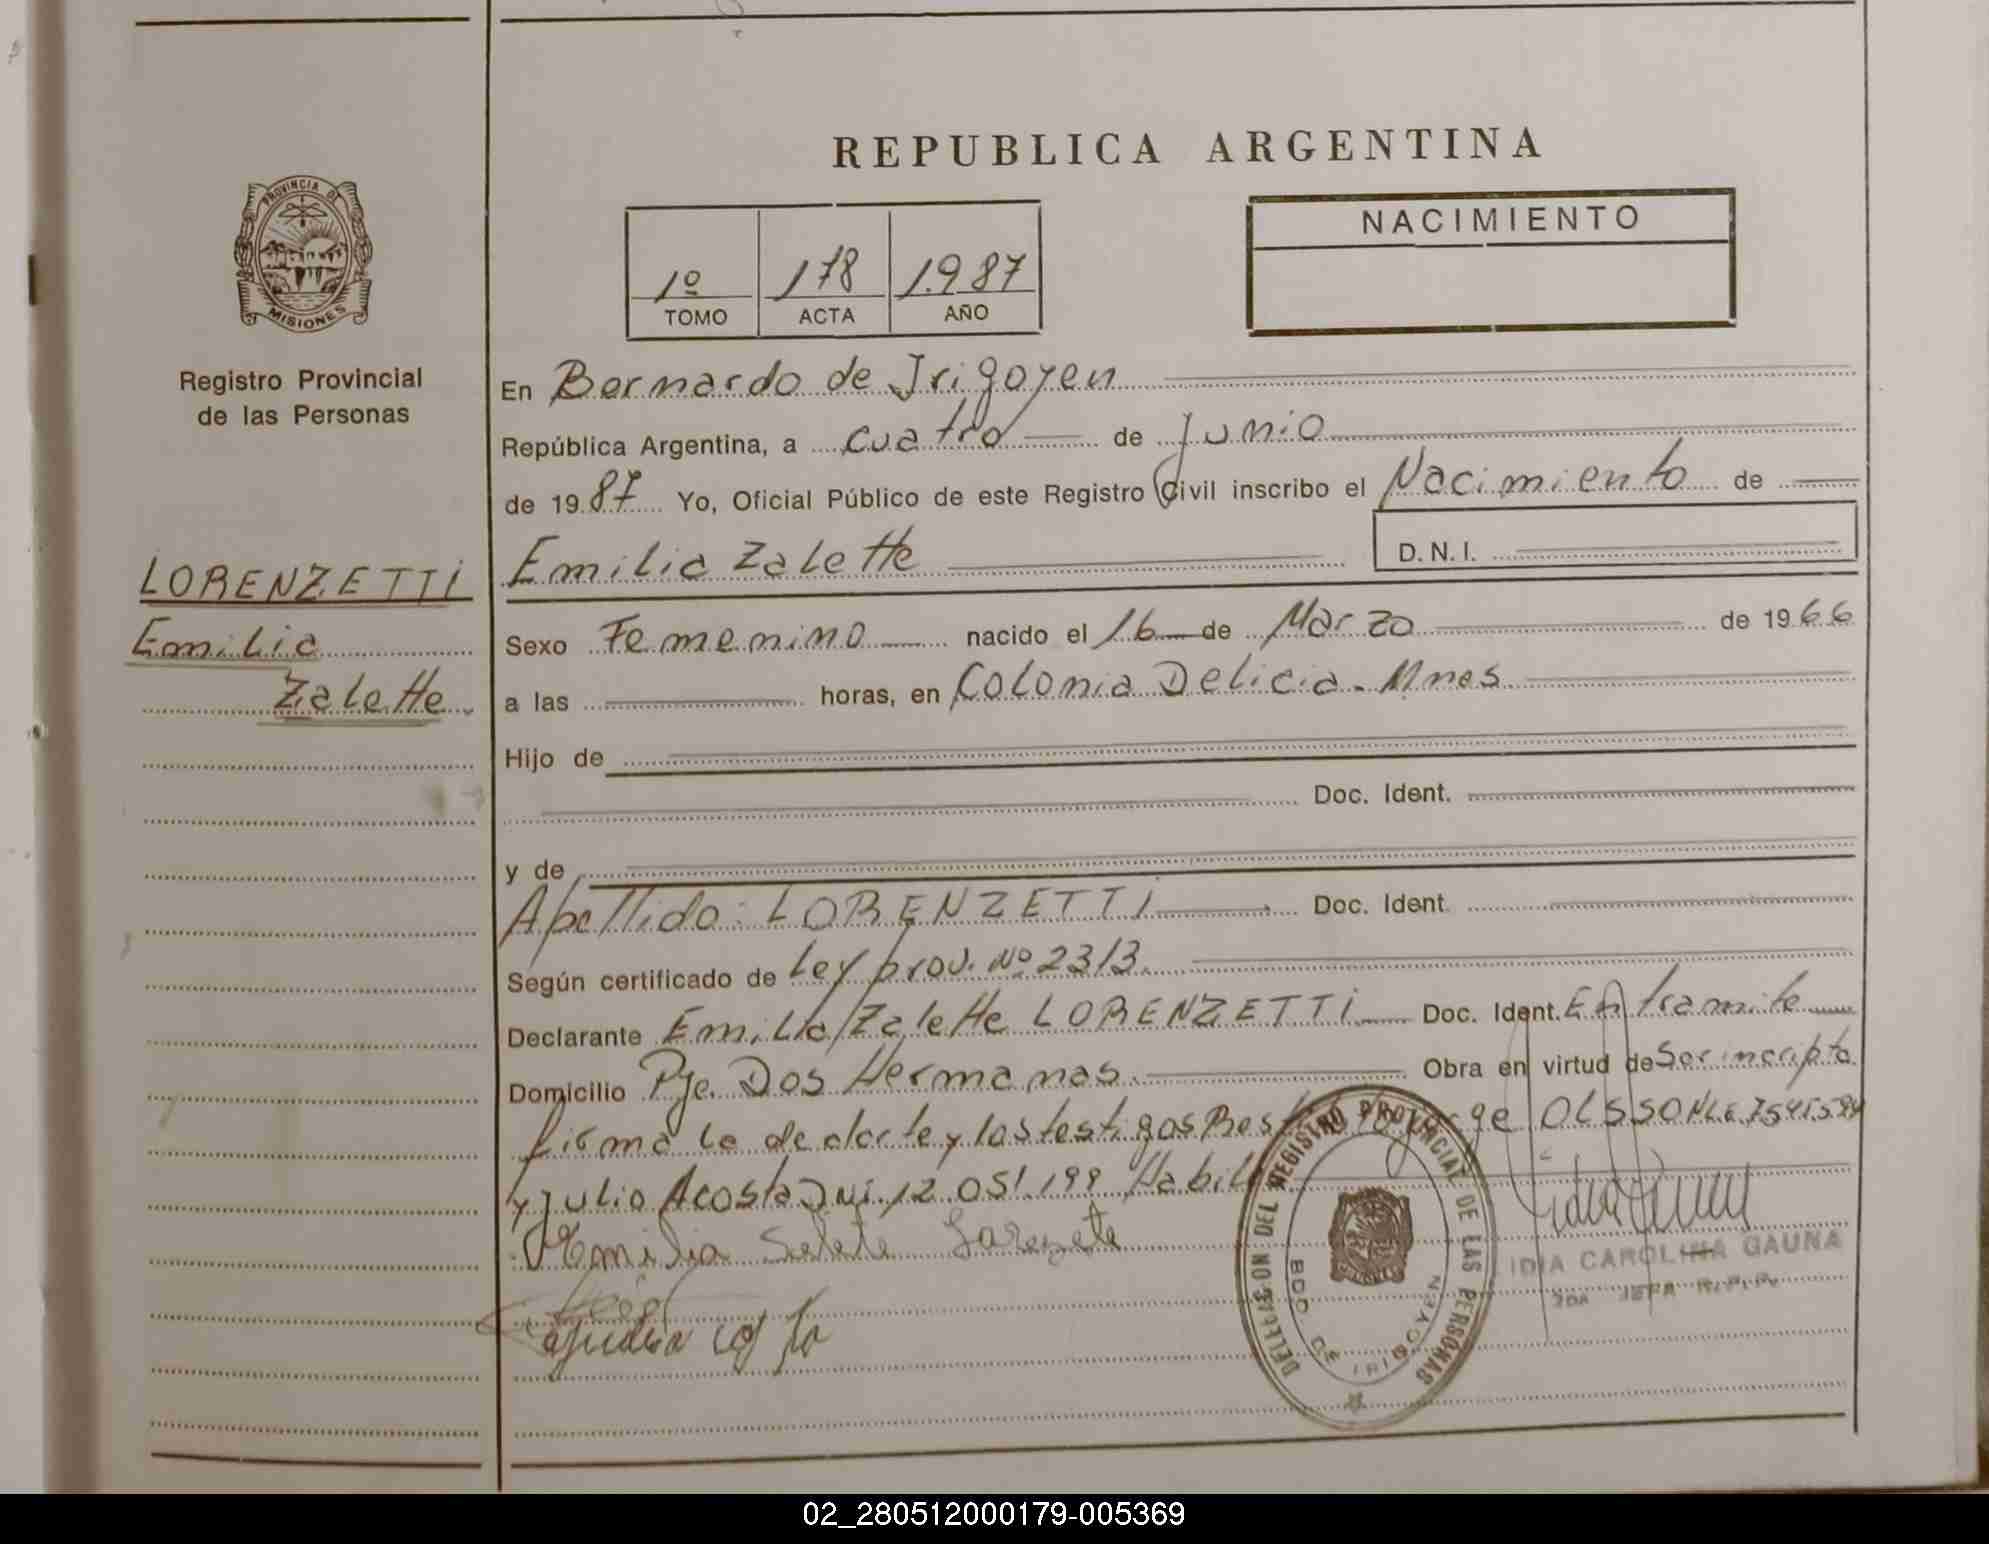 REPUBLICA ARGENTINA
PROVINCIA DE
MISIONES
Registro Provincial
de las Personas
LORENZETTI
Emilia
Zalette
1º 178 1.987
TOMO ACTA AÑO
NACIMIENTO
En Bernardo de Irigoyen
República Argentina, a cuatro de Junio
de 1987 Yo, Oficial Público de este Registro Civil inscribo el Nacimiento de
Emilia Zalette D.N.I.
Sexo Femenino nacido el 16 de Marzo de 1966
a las horas, en Colonia Delicia. Mnes.
Hijo de
Doc. Ident.
y de
Apellido: LORENZETTI Doc. Ident.
Según certificado de Ley prov. Nº 2313.
Declarante Emilia Zalette LORENZETTI Doc. Ident. En tramite
Domicilio Pje. Dos Hermanas. Obra en virtud de Ser inscripta
firma la declarte y los testigos OLSSON
y Julio Acosta DNI. 12.051.199
Emilia Salete
DELEGACION DEL REGISTRO PROVINCIAL DE LAS PERSONAS
BDO. DE IRIGOYEN
LIDIA CAROLINA GAUNA
JEFA R.P.P.
02_280512000179-005369